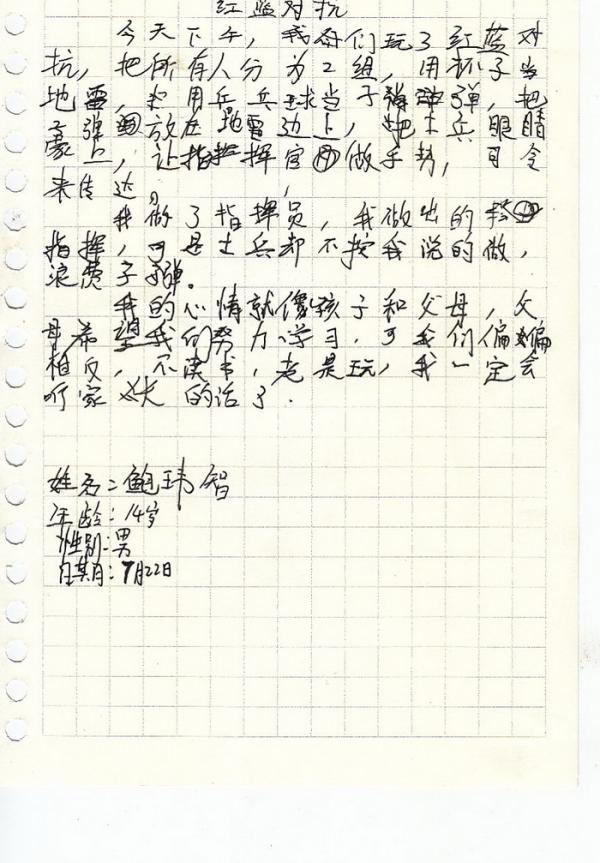 红蓝对抗
今天下午,我们玩了红蓝对
抗,把所有人分为2组,用杯子当
地雷,用乒乓球当子弹,把
弹放在地雷边上,把士兵眼睛
蒙上,让指挥官做手势,司令
来传达。
我做了指挥员,我做出的
指挥,可是士兵却不按我说的做,
浪费子弹。
我的心情就像孩子和父母,父
母希望我们努力学习,可我们偏偏
相反,不读书,老是玩,我一定会
听家长的话了.
姓名:鲍玮智
年龄:14岁
性别:男
日期:7月22日